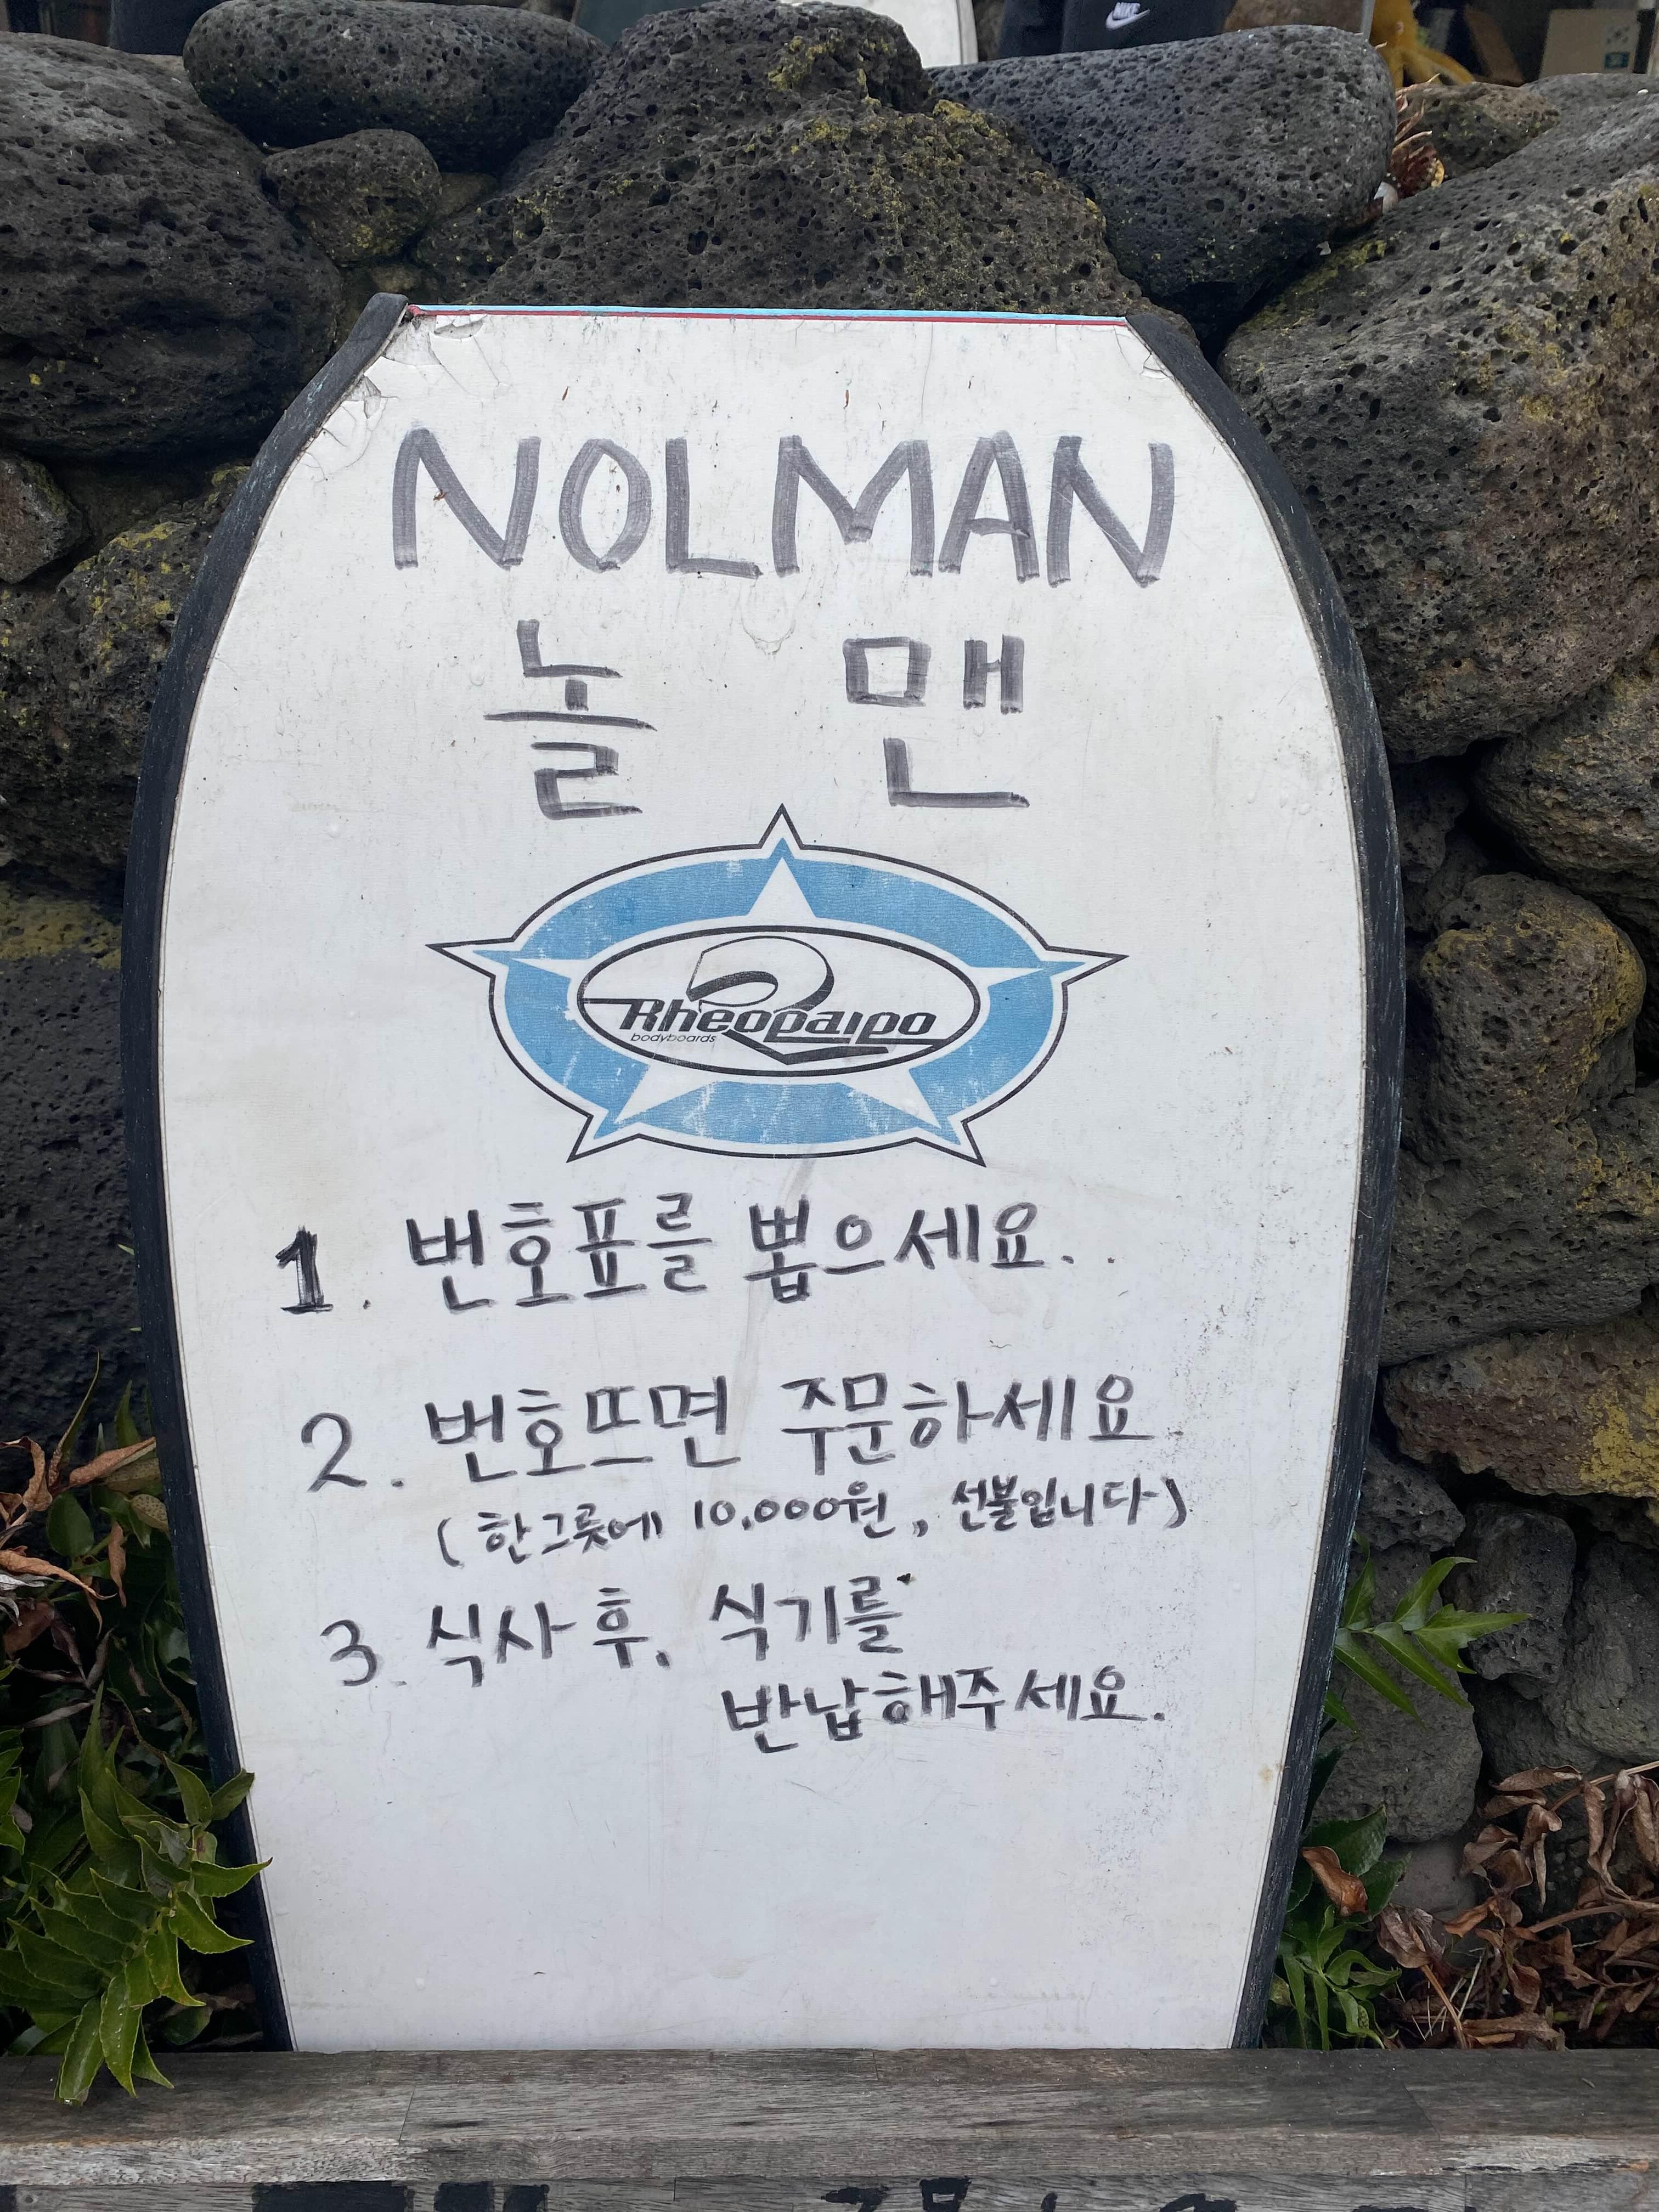 NIKE
NOLMAN
놀 맨
Rheopaipo
bodyboards
1. 번호표를 뽑으세요.
2. 번호뜨면 주문하세요
(한그릇에 10,000원, 선불입니다)
3. 식사 후, 식기를
반납해주세요.